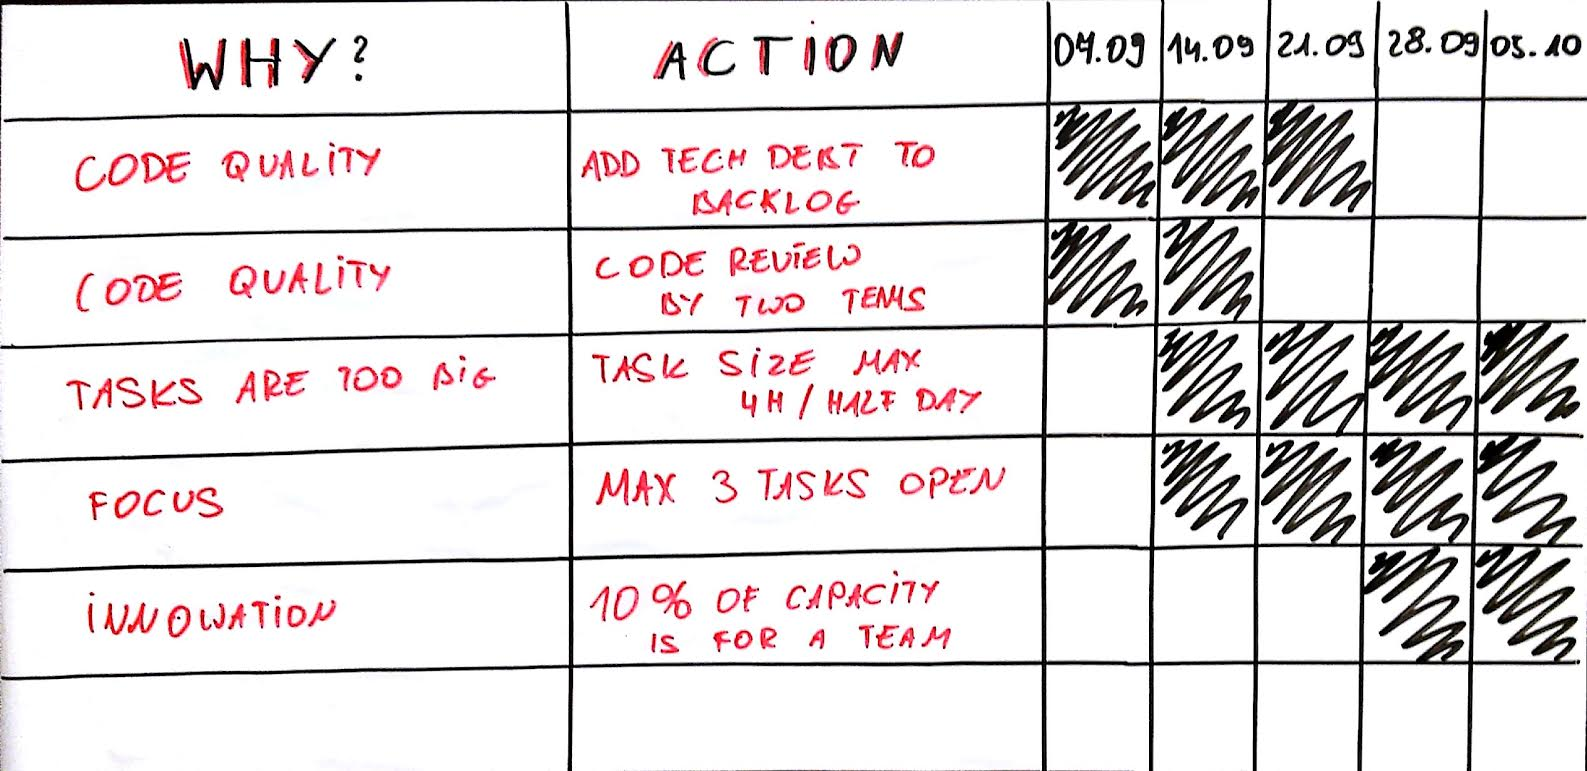 WHY? ACTION 07.09 14.09 21.09 28.09 05.10
CODE QUALITY
ADD TECH DEBT TO
BACKLOG
CODE QUALITY
CODE REVIEW
BY TWO TEAMS
TASKS ARE TOO BiG
TASK SiZE MAX
4H / HALF DAY
FOCUS
MAX 3 TASKS OPEN
iNNOWATiON
10% OF CAPACiTY
IS FOR A TEAM